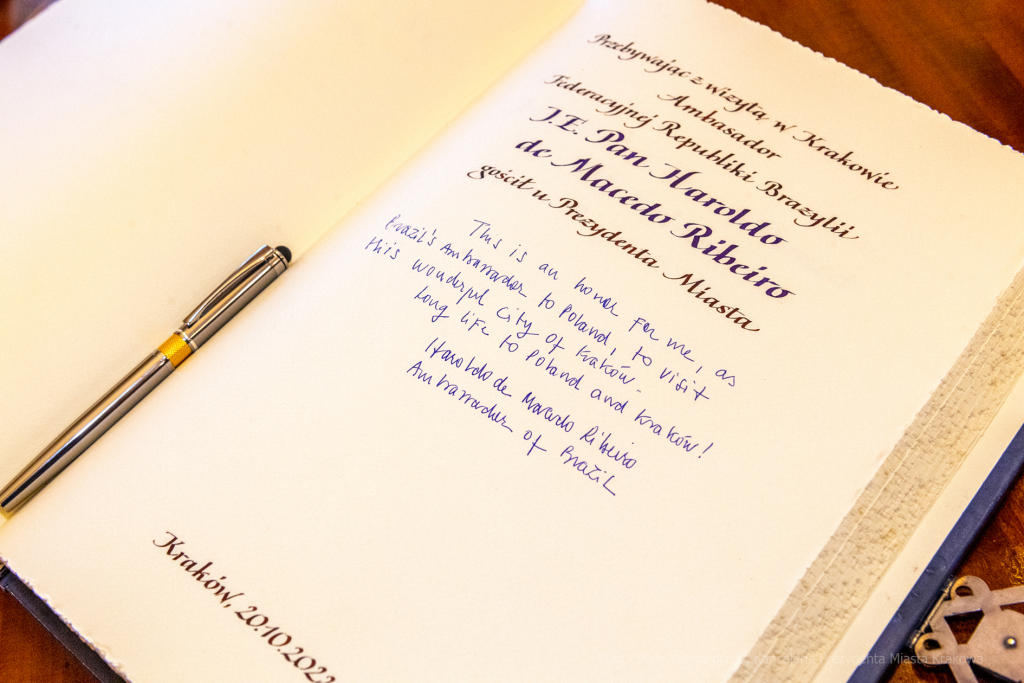 Przebywając z wizytą w Krakowie
Ambasador
Federacyjnej Republiki Brazylii
J.E. Pan Haroldo
de Macedo Ribeiro
gościł u Prezydenta Miasta
This is an honor for me, as
Brazil's Ambassador to Poland, to visit
this wonderful City of Kraków.
Long life to Poland and Kraków!
Haroldo de Macedo Ribeiro
Ambassador of Brazil
Kraków, 20.10.2022
Miasta Krakowa